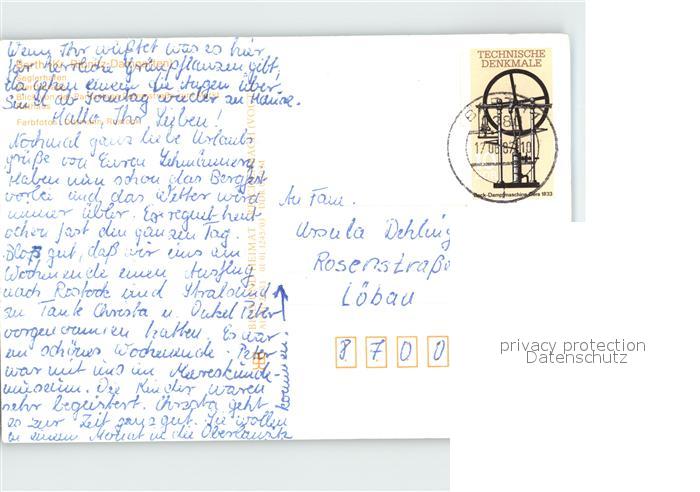 Wenn Ihr wüßtet was es hier
für herrliche Grünpflanzen gibt,
da gehen einem die Augen über.
Sind ab Sonntag wieder zu Hause.
Hallo, Ihr Lieben!
Nochmal ganz liebe Urlaubs
grüße von Euren Lehmännern
Haben nun schon das Bergfest
vorbei und das Wetter wird
immer übler. Es regnet heut
schon fast den ganzen Tag.
Bloß gut, daß wir uns am
Wochenende einen Ausflug
nach Rostock und Stralsund
zu Tante Christa u. Onkel Peter
vorgenommen hatten. Es war
ein schönes Wochenende. Peter
war mit uns im Meereskunde-
museum. Die Kinder waren
sehr begeistert. Christa geht
es zur Zeit ganz gut. Sie wollen
in einem Monat in die Oberlausitz
kommen.
Seglerhafen
Farbfotos
TECHNISCHE
DENKMALE
Bock-Dampfmaschine Gera 1833
An Fam.
Ursula Dehling
Rosenstraße
Löbau
8 7 0 0
privacy protection
Datenschutz